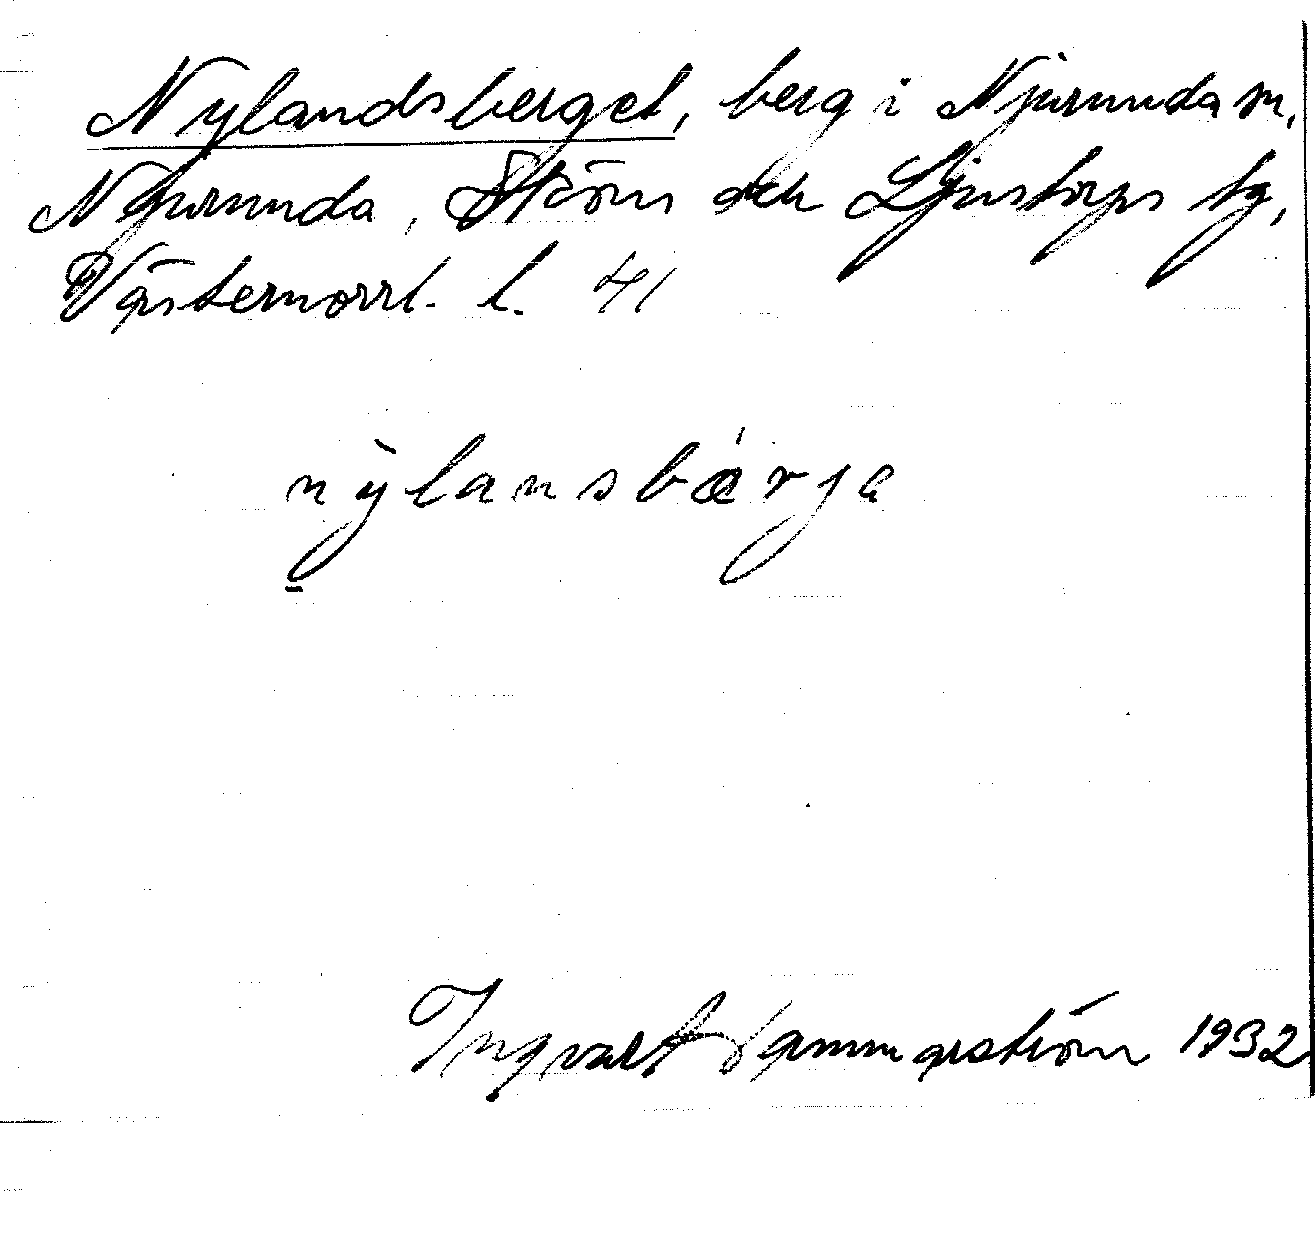 Nylandsberget, berg i Njurunda sn,
Njurunda, Sköns och Ljustorps tg,
Västernorrl. l. 41
nỳlansbárja
Ingvart Hammarström 1932